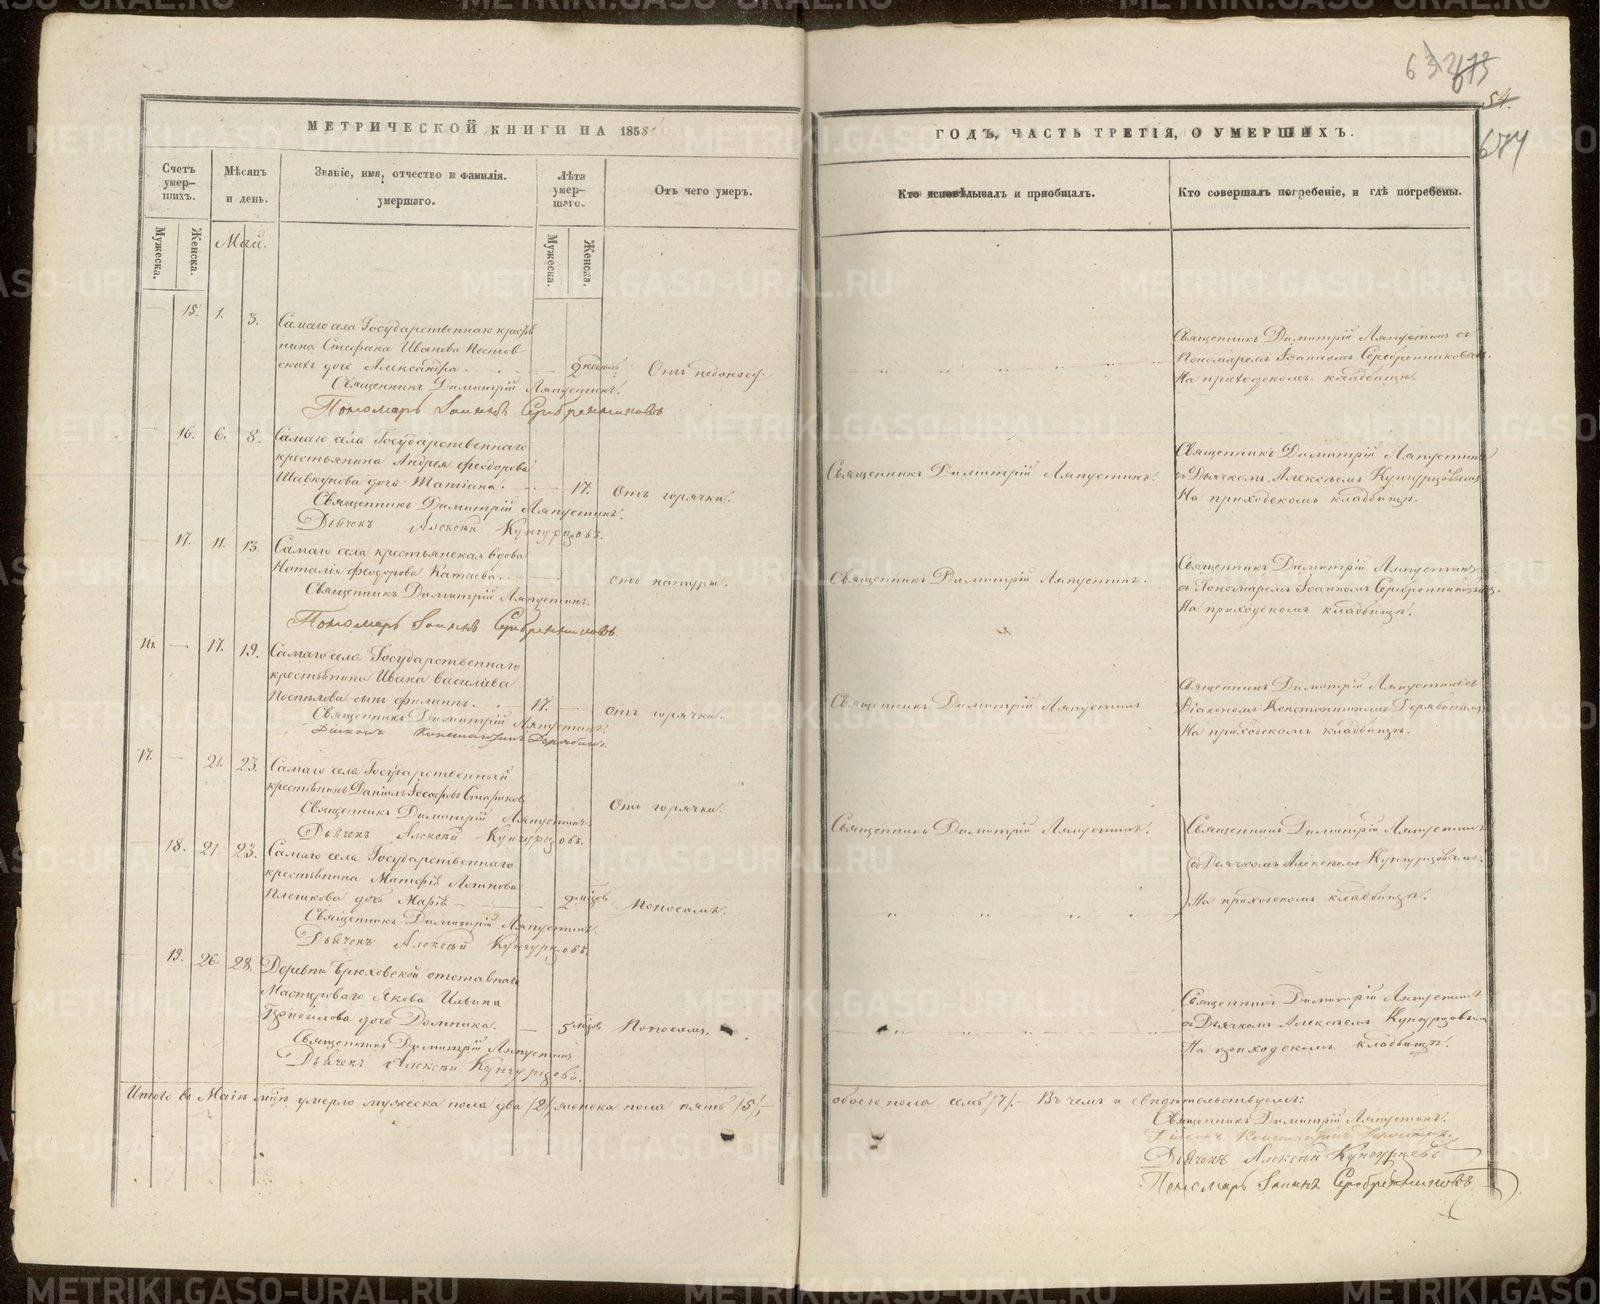 МЕТРИЧЕСКОЙ КНИГИ НА 1858
ГОДЪ, ЧАСТЬ ТРЕТІЯ, О УМЕРШИХЪ.
54.
674
Счетъ умер-
шихъ.
Мужеска.
Женска.
Мѣсяцъ
и день.
Званіе, имя, отчество и фамилія.
умершаго.
Лѣта
умер-
шаго.
Мужеска.
Женска.
Отъ чего умеръ.
Кто исповѣдывалъ и приобщалъ.
Кто совершалъ погребеніе, и гдѣ погребены.
Май.
15. 1. 3. Самаго села Государственнаго крестья
нина Стефана Иванова
скихъ дочь Александра. 2 недѣль
Священникъ Димитрій Ляпустинъ.
Пономарь Іоаннъ Серебренниковъ
Священникъ Димитрій Ляпустинъ съ
Пономаремъ Іоанномъ Серебренниковымъ.
На приходскомъ кладбищѣ.
16. 6. 8. Самаго села Государственнаго
крестьянина Андрея Феодорова
Шавкунова дочь Татіана. 17. Отъ горячки.
Священникъ Димитрій Ляпустинъ.
Дьячекъ Алексѣй Кунгурцовъ.
Священникъ Димитрій Ляпустинъ.
Священникъ Димитрій Ляпустинъ
съ Дьячкомъ Алексѣемъ Кунгурцовымъ
На приходскомъ кладбищѣ.
17. 11. 13. Самаго села крестьянская вдова
Наталія Феодорова Катаева. отъ натуры.
Священникъ Димитрій Ляпустинъ.
Пономарь Іоаннъ Серебренниковъ
Священникъ Димитрій Ляпустинъ.
Священникъ Димитрій Ляпустинъ
съ Пономаремъ Іоанномъ Серебренниковымъ.
На приходскомъ кладбищѣ.
16. 17. 19. Самаго села Государственнаго
крестьянина Ивана Васильева
Поспѣлова сынъ Филиппъ. 17. отъ горячки.
Священникъ Димитрій Ляпустинъ.
Діаконъ Константинъ
Священникъ Димитрій Ляпустинъ
Священникъ Димитрій Ляпустинъ съ
Діакономъ Константиномъ
На приходскомъ кладбищѣ.
17. 21. 23. Самаго села Государственный
крестьянинъ Даніилъ Іосифовъ Стариковъ
Отъ горячки.
Священникъ Димитрій Ляпустинъ.
Дьячекъ Алексѣй Кунгурцовъ.
Священникъ Димитрій Ляпустинъ.
Священникъ Димитрій Ляпустинъ
съ Дьячкомъ Алексѣемъ Кунгурцовымъ.
На приходскомъ кладбищѣ.
18. 21. 23. Самаго села Государственнаго
крестьянина Матфія Логинова
Плешкова дочь Марія 2 мѣсяц Поносомъ.
Священникъ Димитрій Ляпустинъ.
Дьячекъ Алексѣй Кунгурцовъ.
19. 26. 28. Деревни Брюховской отставнаго
Мастероваго Якова Ильина
дочь Домника. 5 мѣсяц Поносомъ.
Священникъ Димитрій Ляпустинъ
Дьячекъ Алексѣй Кунгурцовъ.
Священникъ Димитрій Ляпустинъ
съ Дьячкомъ Алексѣемъ Кунгурцовымъ
На приходскомъ кладбищѣ.
Итого въ Маіѣ м-цѣ умерло мужеска пола два /2/ женска пола пять /5/,
обоего пола семь /7/.— Въ чемъ и свидѣтельствуемъ:
Священникъ Димитрій Ляпустинъ.
Діаконъ Константинъ
Дьячекъ Алексѣй Кунгурцевъ
Пономарь Іоаннъ Серебренниковъ
METRIKI.GASO-URAL.RU